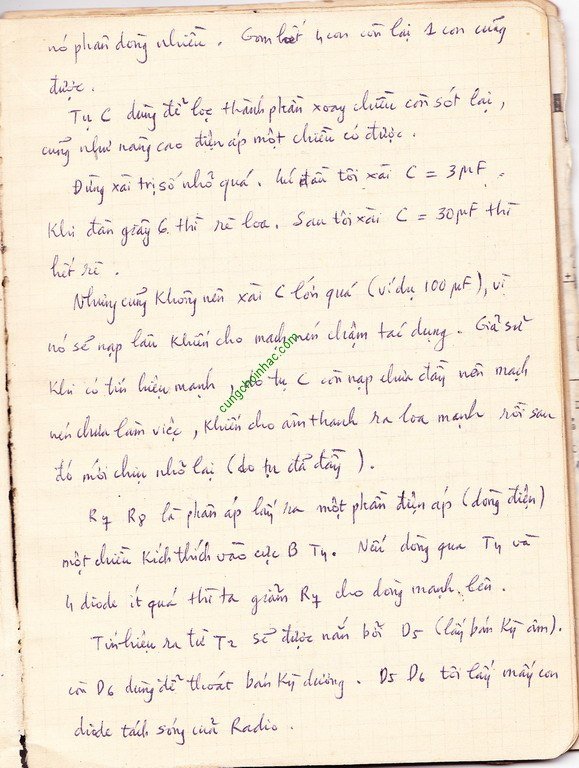 nó phân dòng nhiều. Gom hết 4 con còn lại 1 con cũng
được.
Tụ C dùng để lọc thành phần xoay chiều còn sót lại,
cũng như nâng cao điện áp một chiều có được.
Đừng xài trị số nhỏ quá. Lúc đầu tôi xài C = 3µF.
Khi đàn giây 6 thì rè loa. Sau tôi xài C = 30µF thì
hết rè.
Nhưng cũng không nên xài C lớn quá (ví dụ 100µF), vì
nó sẽ nạp lâu khiến cho mạch nén chậm tác dụng. Giả sử
khi có tín hiệu mạnh, do tụ C còn nạp chưa đầy nên mạch
nén chưa làm việc, khiến cho âm thanh ra loa mạnh rồi sau
đó mới chịu nhỏ lại (do tụ đã đầy).
R7 R8 là phân áp lấy ra một phần điện áp (dòng điện)
một chiều kích thích vào cực B T4. Nếu dòng qua T4 và
4 diode ít quá thì ta giảm R7 cho dòng mạnh lên.
Tín hiệu ra từ T2 sẽ được nắn bởi D5 (lấy bán kỳ âm).
còn D6 dùng để thoát bán kỳ dương. D5 D6 tôi lấy mấy con
diode tách sóng của Radio.
cungchoinhac.com